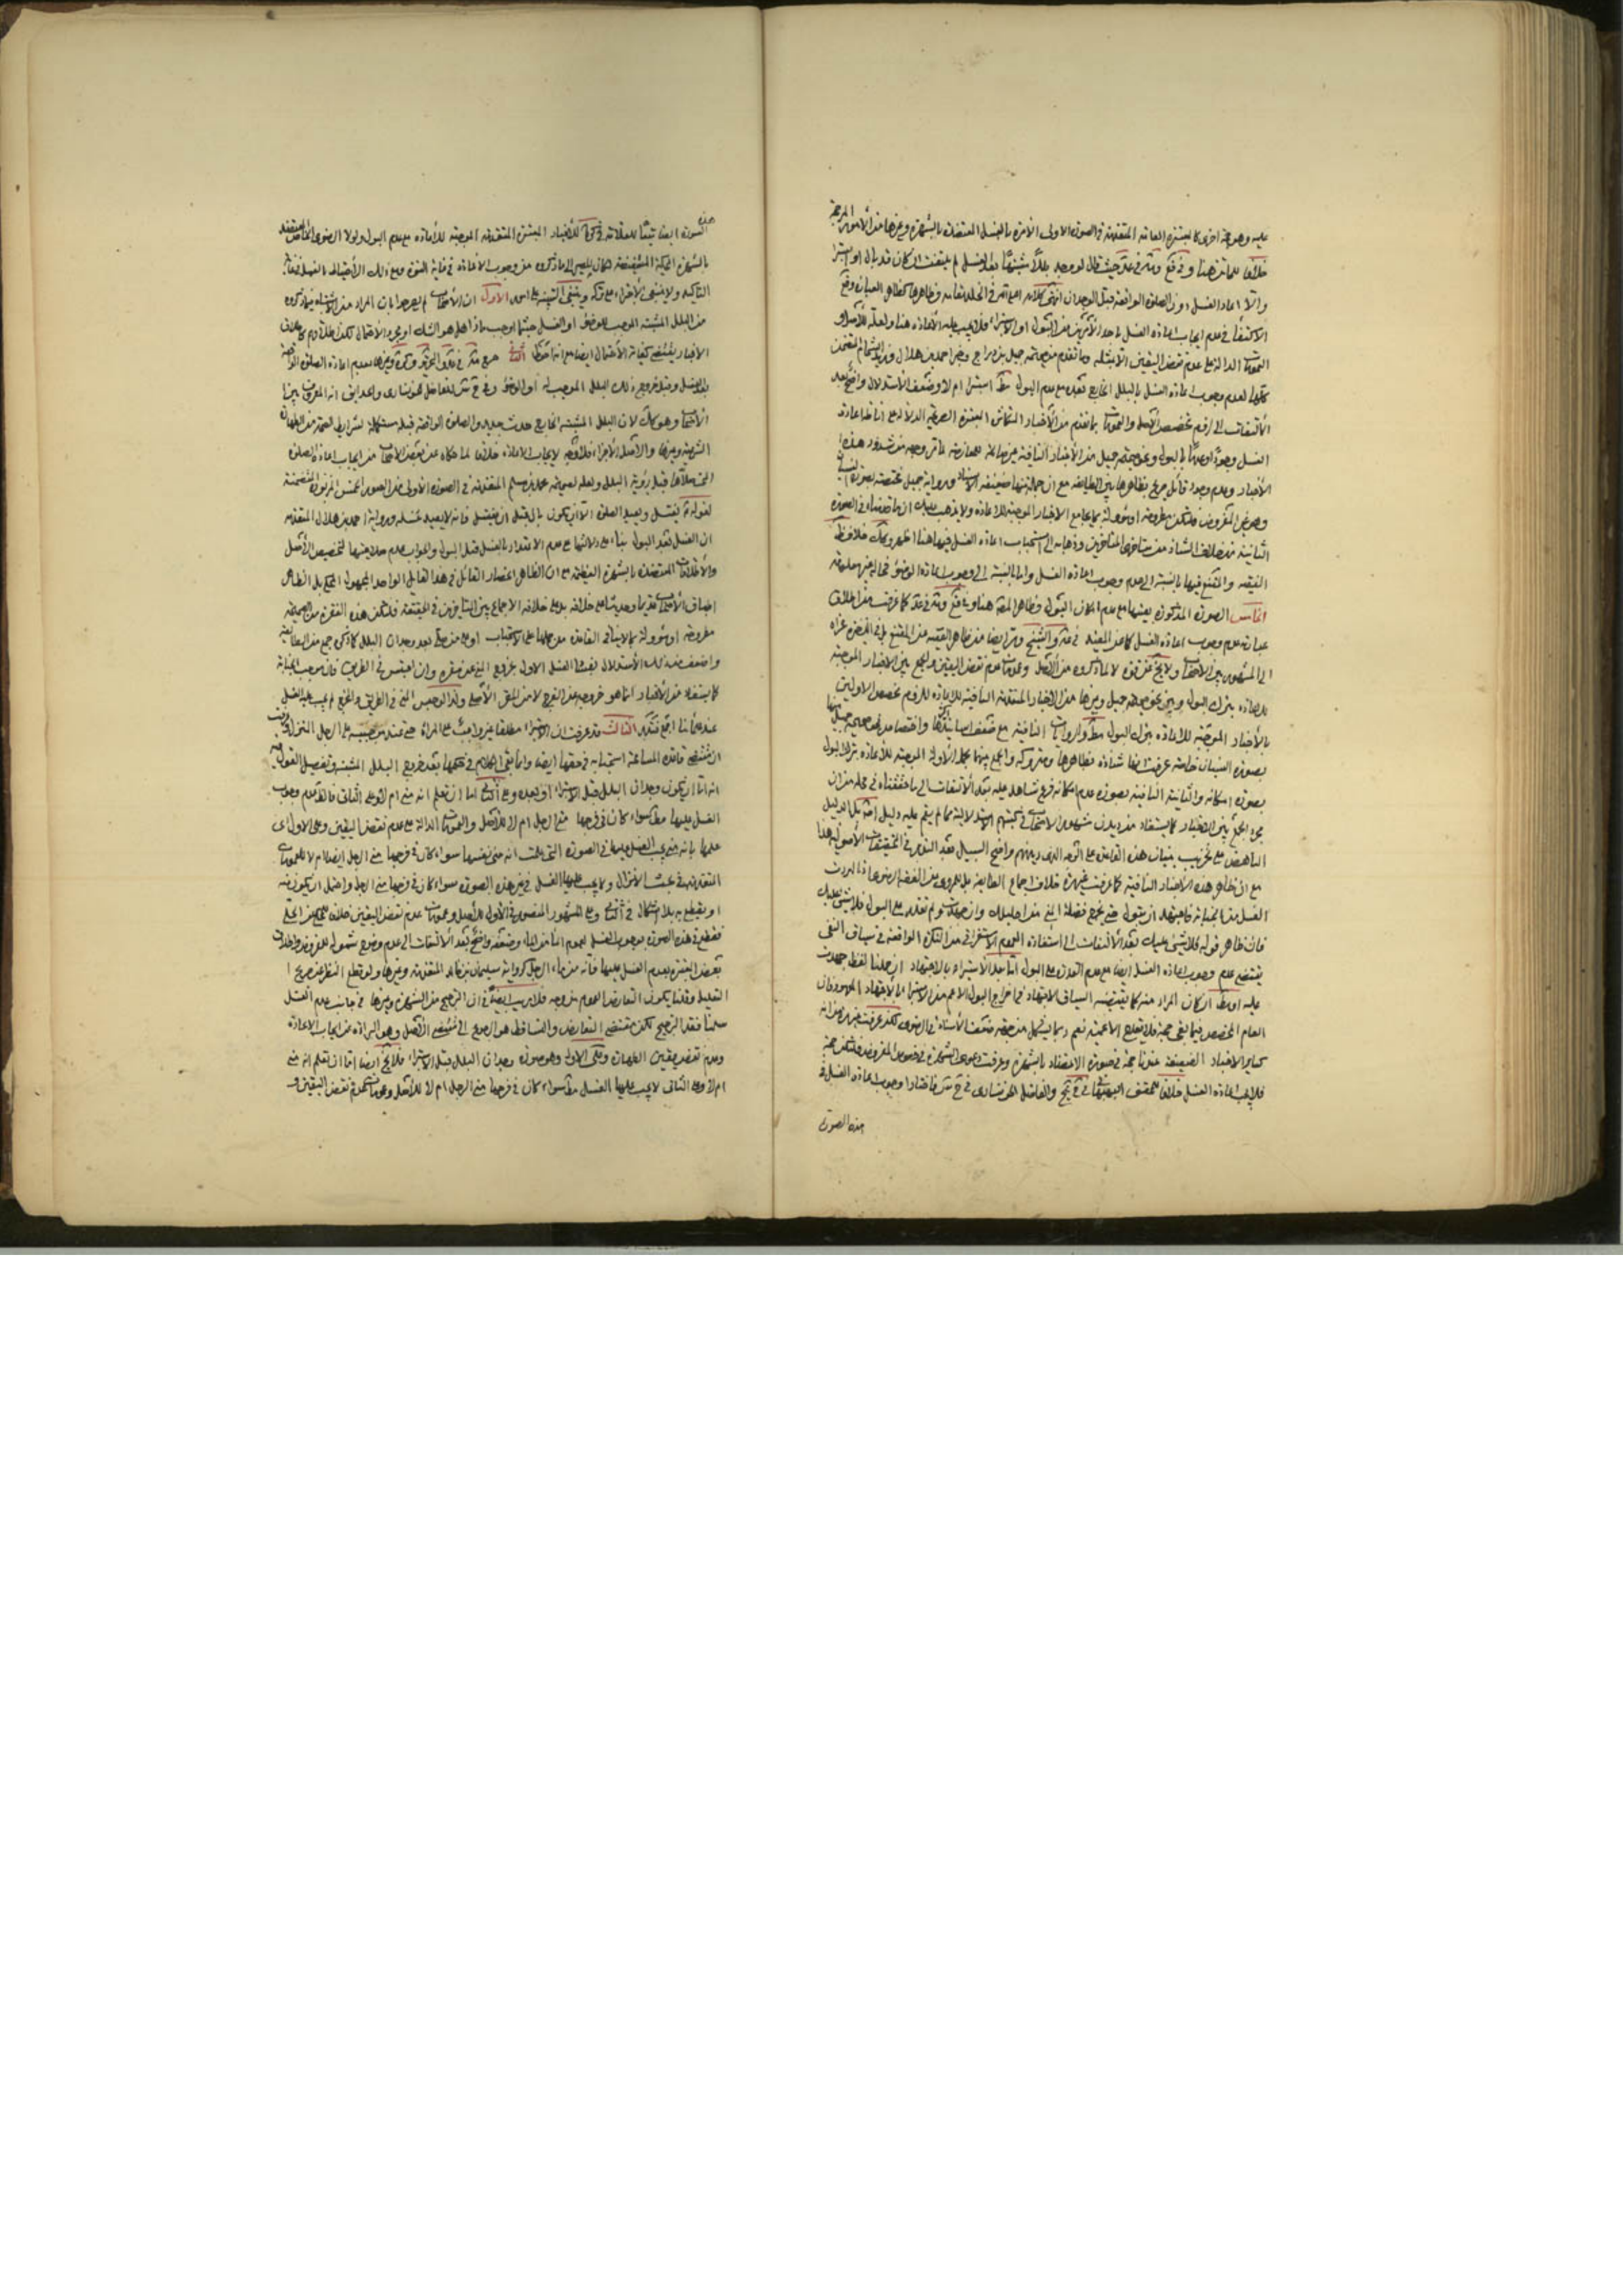 عليه وهو حجة اخرى كالمعتبرة العامة المتقدمة في الصورة الاولى الآمرة بالغسل المعتضدة بالشهرة وغيرها من الأمور المرجحة
خلافا للمات هنا وفي حيث قال لو وجد بللا مشتبها بعد الغسل لم يلتفت ان كان قد بال او استبرأ
والا اعاد الغسل دون الصلوة الواقعة قبل الوجدان انتهى كلامه
الاكتفاء في عدم ايجاب اعادة الغسل باحد الأمرين من البول او الاستبراء فلا يجب عليه الاعادة هنا ولعله للأصل و
العمومات الدالة على عدم نقض اليقين الا بمثله وما تقدم من صحيحة جميل بن دراج وخبر احمد بن هلال
كلها لعدم وجوب اعادة الغسل بالبلل الخارج بعده مع عدم البول استبرأ ام لا وضعف الاستدلال واضح بعد
الالتفات الى لزوم تخصيص الأصل والعمومات بما تقدم من الأخبار المعتبرة الصريحة الدلالة على اناطة اعادة
الغسل وجودا وعدما بالبول ونحو صحيحة جميل من الأخبار النافية غير صالحة للمعارضة لما مر وجهه من شذوذ هذه
الأخبار وعدم وجود قائل صريح بظاهرها بين الطايفة مع ان جملة منها ضعيفة الاسناد ورواية جميل مختصة بصورة النسيان
وهو غير المفروض فلتكن مطروحة او مؤولة بما يجامع الاخبار الموجبة للاعادة ولا يذهب عليك ان ما قدمناه في الصورة
الثانية من خلاف الشاذ من متأخري المتأخرين وذهابه الى استحباب اعادة الغسل فيها هنا اظهر وكك خلاف ظ
الفقيه والمقنع فيها بالنسبة الى عدم وجوب اعادة الغسل واما بالنسبة الى وجوب اعادة الوضوء
الخامس الصورة المذكورة بعينها مع عدم امكان البول وظاهر هنا كما عرفت من اطلاق
عبارته عدم وجوب اعادة الغسل كما عن المفيد في والشيخ ايضا من ظاهر الفقيه من المقنع بل في الذخيرة عزاه
الى المشهور بين الاصحاب ولا يخ عن قوة لا لما ذكروه من الأصل وعمومات عدم نقض اليقين والجمع بين الاخبار الموجبة
للاعادة بترك البول وبين نحو صحيحة جميل وغيرها من الاخبار المتقدمة النافية للاعادة للزوم تخصيص الاولين
بالأخبار الموجبة للاعادة بترك البول مط والروايات النافية مع ضعف اسانيدها واختصاص صحيحة جميل منها
بصورة النسيان خاصة عرفت انها شاذة بظاهرها ومتروكة والجمع بينهما بحمل الأولة الموجبة للاعادة بترك البول
بصورة امكانه والثانية النافية بصورة عدم امكانه فرع شاهد عليه بعد الالتفات الى ما حققناه في محله من ان
مجرد الجمع بين الاخبار كما يستفاد من ديدن مشهور الاصحاب في كتبهم الاستدلالية مما لم يقم عليه دليل بل الدليل
الناهض على تخريب بنيان هذه القاعدة على الوجه الذي واضح السبيل بعد الغور في التحقيقات الأصولية هذا
مع ان ظاهر هذه الأخبار النافية كما عرفت غير مرة خلاف اجماع الطايفة بل للمروي عن الفقه الرضوي اذا اردت
الغسل من الجنابة فاجتهد ان تبول حتى تخرج فضلة المني من احليلك وان جهدت ولم تقدر على البول فلا شيء عليك
فان ظاهر قوله فلا شيء عليك بعد الالتفات الى استفادة العموم الاستغراقي من النكرة الواقعة في سياق النفي
يقتضي عدم وجوب اعادة الغسل ايضا مع عدم القدرة على البول اما بعد الاستبراء بالاجتهاد ان حملنا لفظ جهدت
عليه او مط ان كان المراد منه كما يقتضيه السياق الاجتهاد في اخراج البول الاعم من الاستبراء
العام المخصص فيما بقي حجة فلا يقدح الاعمية نعم ربما يشكل من جهة ضعف الأسناد في الرضوي لكن عرفت غير مرة انه
كساير الاخبار الضعيفة عندنا حجة في صورة الاعتضاد بالشهرة وعرفت دعوى الشهرة في خصوص المفروض فلتكن حجة
فلا يجب اعادة الغسل خلافا للمحقق البهبهاني في والفاضل الخونساري في فاختارا وجوب اعادة الغسل في
هذه الصورة
هذه
الصورة ايضا تبعا للعلامة في للأخبار المعتبرة المتقدمة الموجبة للاعادة مع عدم البول ولولا الرضوي الخاص المعتضد
بالشهرة المحكية لكان المصير الى ما ذكروه من وجوب الاعادة في غاية القوة ومع ذلك الاحتياط بالغسل في غاية
التأكيد ولا ينبغي الاجتراء على تركه وينبغي التنبيه على امور الأول ان الأصحاب لم يصرحوا بان المراد من الاشتباه فيما ذكروه
من البلل المشتبه الموجب للوضوء او الغسل حيثما اوجب ماذا هل هو الشك او مجرد الاحتمال لكن اطلاق
الأخبار يقتضي كفاية الاحتمال ايضا مع انه احوط الثاني صرح وغيرها بعدم اعادة الصلوة الواقعة
بعد الغسل وقبل خروج ذلك البلل الموجب له او الوضوء وفي للفاضل الخونساري والحدايق انه المعروف بين
الأصحاب وهو كك لان البلل المشتبه الخارج حدث جديد والصلوة الواقعة قبله مستكملة لشرايط الصحة من الطهارة
الشرعية وغيرها والأصل الاجزاء فلا وجه لايجاب الاعادة خلافا لما حكاه عن بعض الاصحاب من ايجاب اعادة الصلوة
التي صلاها قبل رؤية البلل ولعله لصحيحة محمد بن مسلم المتقدمة في الصورة الاولى من الصور الخمس المزبورة المتضمنة
لقوله ع يغتسل ويعيد الصلوة الا ان يكون بال قبل ان يغتسل فانه لا يعيد غسله ورواية احمد بن هلال المتقدمة
ان الغسل بعد البول بناء على دلالتها مع عدم الاعتداد بالغسل قبل البول والجواب عدم صلاحيتها لتخصيص الأصل
والاطلاقات المعتضدة بالشهرة العظيمة مع ان الظاهر انحصار القائل في هذا القائل الواحد المجهول المحكي بل الظاهر
اطباق الأصحاب قديما وحديثا على خلافه بل على خلافه الاجماع بين المتأخرين في الحقيقة فلتكن هذه الفقرة من الصحيحة
مطروحة او مؤولة بما لا ينافي القاعدة من حملها على الاستحباب او على من صلى بعد وجدان البلل كما ذكره جمع من الطايفة
واضعف من ذلك الاستدلال بفساد الغسل الاول بخروج المني عن مقره وان احتبس في الطريق فان موجب الجنابة
كما يستفاد من الأخبار انما هو خروجه عن الفرج لا من المقر الأصلي ولذا لو حبس المني في الطريق ولم يخرج لم يجب عليه الغسل
عند علمائنا اجمع فتدبر الثالث قد عرفت ان الاستبراء مطلقا غير واجب على المرأة حتى عند من يوجبه على الرجل المنزل وعرفت
ان مقتضى قاعدة المسامحة استحبابه في حقها ايضا وانما بقي الكلام في حكمها بعد خروج البلل المشتبه وتفصيل القول فيه
انه اما ان يكون وجدان البلل قبل الاستبراء او بعده وعلى الثاني اما ان تعلم انه مني ام لا وعلى الثاني فالظ عدم وجوب
الغسل عليها مط سواء كان في فرجها مني الرجل ام لا للأصل والعمومات الدالة على عدم نقض اليقين وعلى الاول اي
علمها بانه مني يجب الغسل عليها في الصورة التي علمت انه مني نفسها سواء كان في فرجها مني الرجل ايضا ام لا للعمومات
المتقدمة في بحث الانزال ولا يجب عليها الغسل في غير هذه الصورة سواء كان في فرجها مني الرجل واحتمل ان يكون منه
او يقطع به بلا اشكال في الثاني وعلى المشهور المنصور في الأول للأصل وعمومات عدم نقض اليقين خلافا للمحكي عن الحلي
فقطع في هذه الصورة بوجوب الغسل لعموم الماء من الماء وضعفه واضح بعد الالتفات الى عدم وضوح شموله للمفروض واطلاق
بعض المعتبرة بعدم الغسل عليها فانه من ماء الرجل كرواية سليمان بن خالد المتقدمة وغيرها ولو قطع النظر عن صريح
التعليل وقلنا بكون التعارض العموم من وجه فلا ريب ايضا في ان الترجيح من الشهرة وغيرها في جانب عدم الغسل
سلمنا فقد الترجيح لكن مقتضى التعارض والتساقط هو الرجوع الى مقتضى الأصل وهو البراءة عن ايجاب الاعادة
وعدم نقض يقين الطهارة وعلى الاول وهو صورة وجدان البلل قبل الاستبراء فلا يخ ايضا اما ان تعلم انه مني
ام لا وعلى الثاني لا يجب عليها الغسل مط سواء كان في فرجها مني الرجل ام لا للأصل وعمومات عدم نقض اليقين و